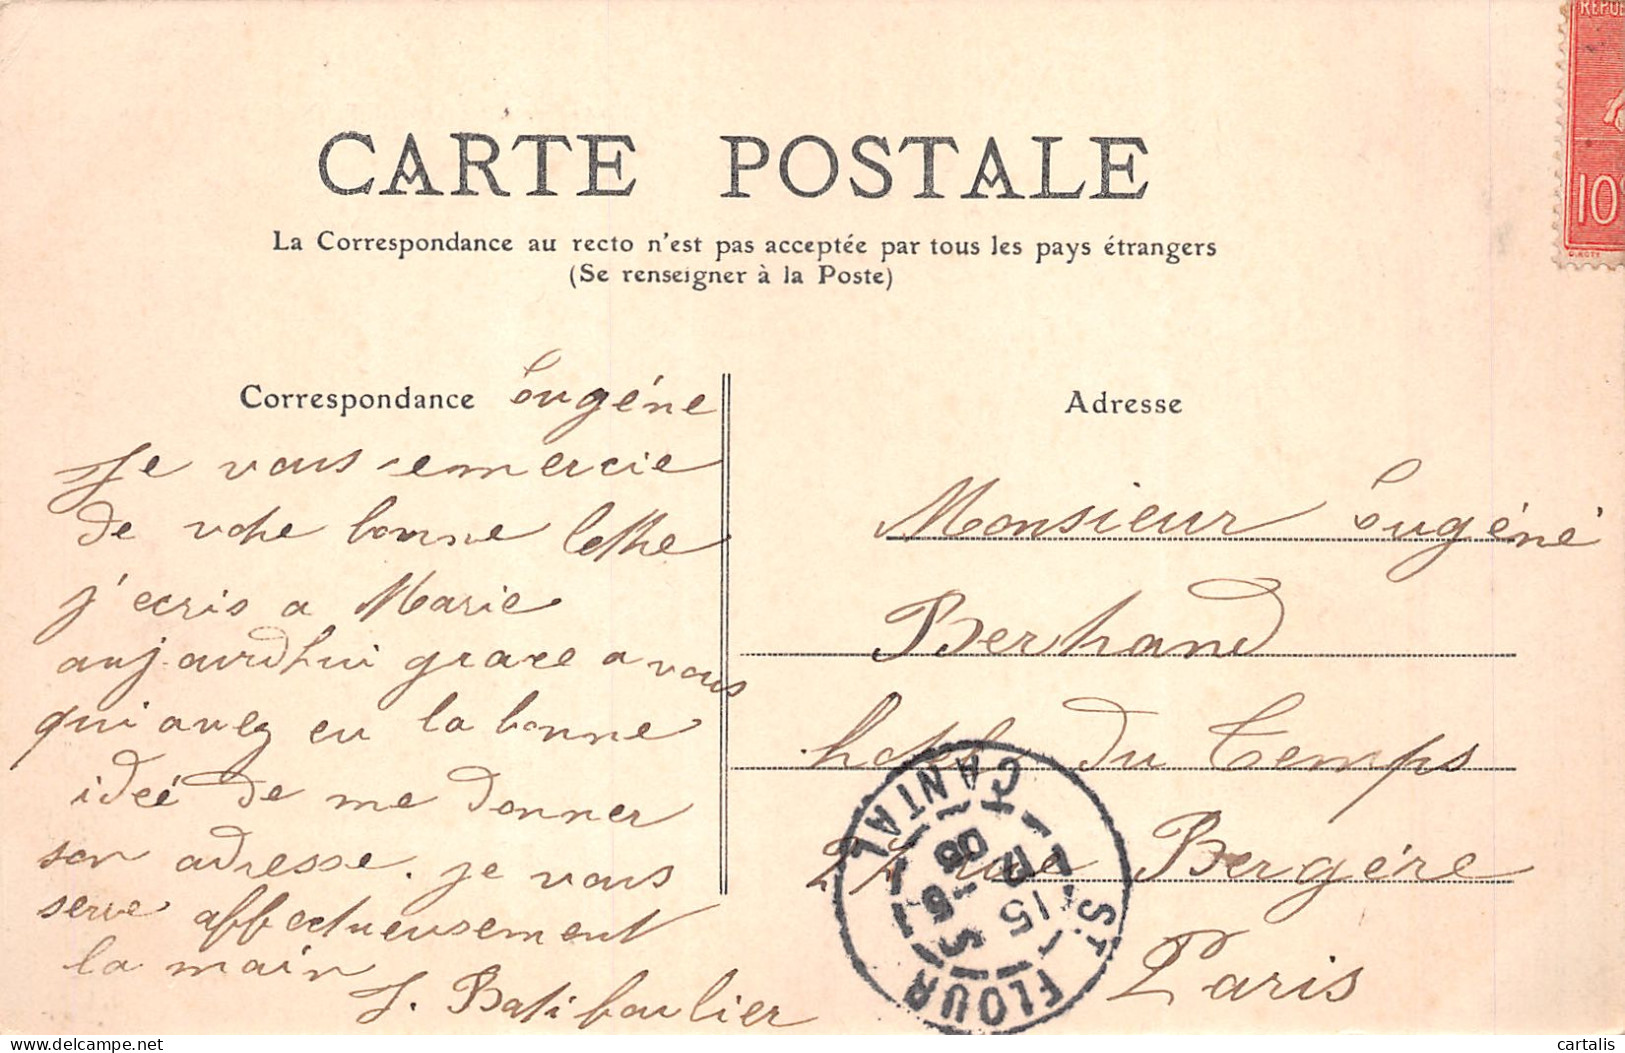 REPU
10
CARTE POSTALE
La Correspondance au recto n'est pas acceptée par tous les pays étrangers
(Se renseigner à la Poste)
Correspondance
Eugéne
Je vous remercie
de votre bonne lettre
j'ecris a Marie
aujourdhui grace a vous
qui avez eu la bonne
ideé de me donner
son adresse. je vous
serre affectueusement
la main
J. Batifoulier
Adresse
Monsieur Eugéné
Bertrand
hotel du Temps
rue Bergére
Paris
ST FLOUR
CANTAL
15
5-5
06
cartalis
delcampe.net